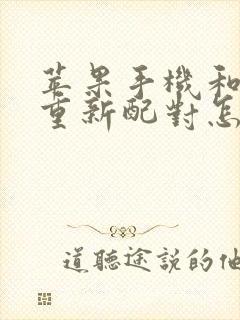 苹果手機和
重新配對怎
道聽途説的他